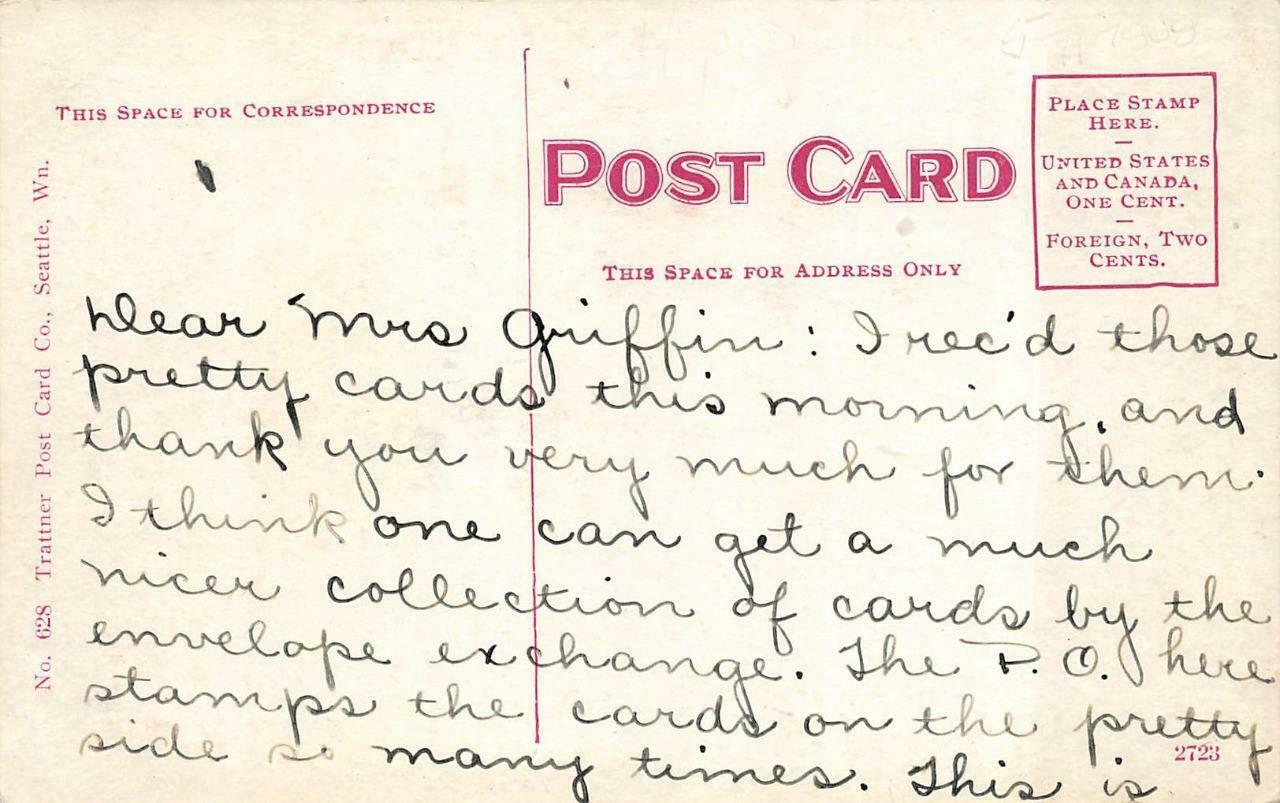 THIS SPACE FOR CORRESPONDENCE
POST CARD
PLACE STAMP
HERE.
—
UNITED STATES
AND CANADA,
ONE CENT.
—
FOREIGN, TWO
CENTS.
THIS SPACE FOR ADDRESS ONLY
No. 628 Trattner Post Card Co., Seattle, Wn.
Dear Mrs Griffin: I rec'd those
pretty cards this morning, and
thank you very much for them.
I think one can get a much
nicer collection of cards by the
envelope exchange. The P.O. here
stamps the cards on the pretty
side so many times. This is
2723